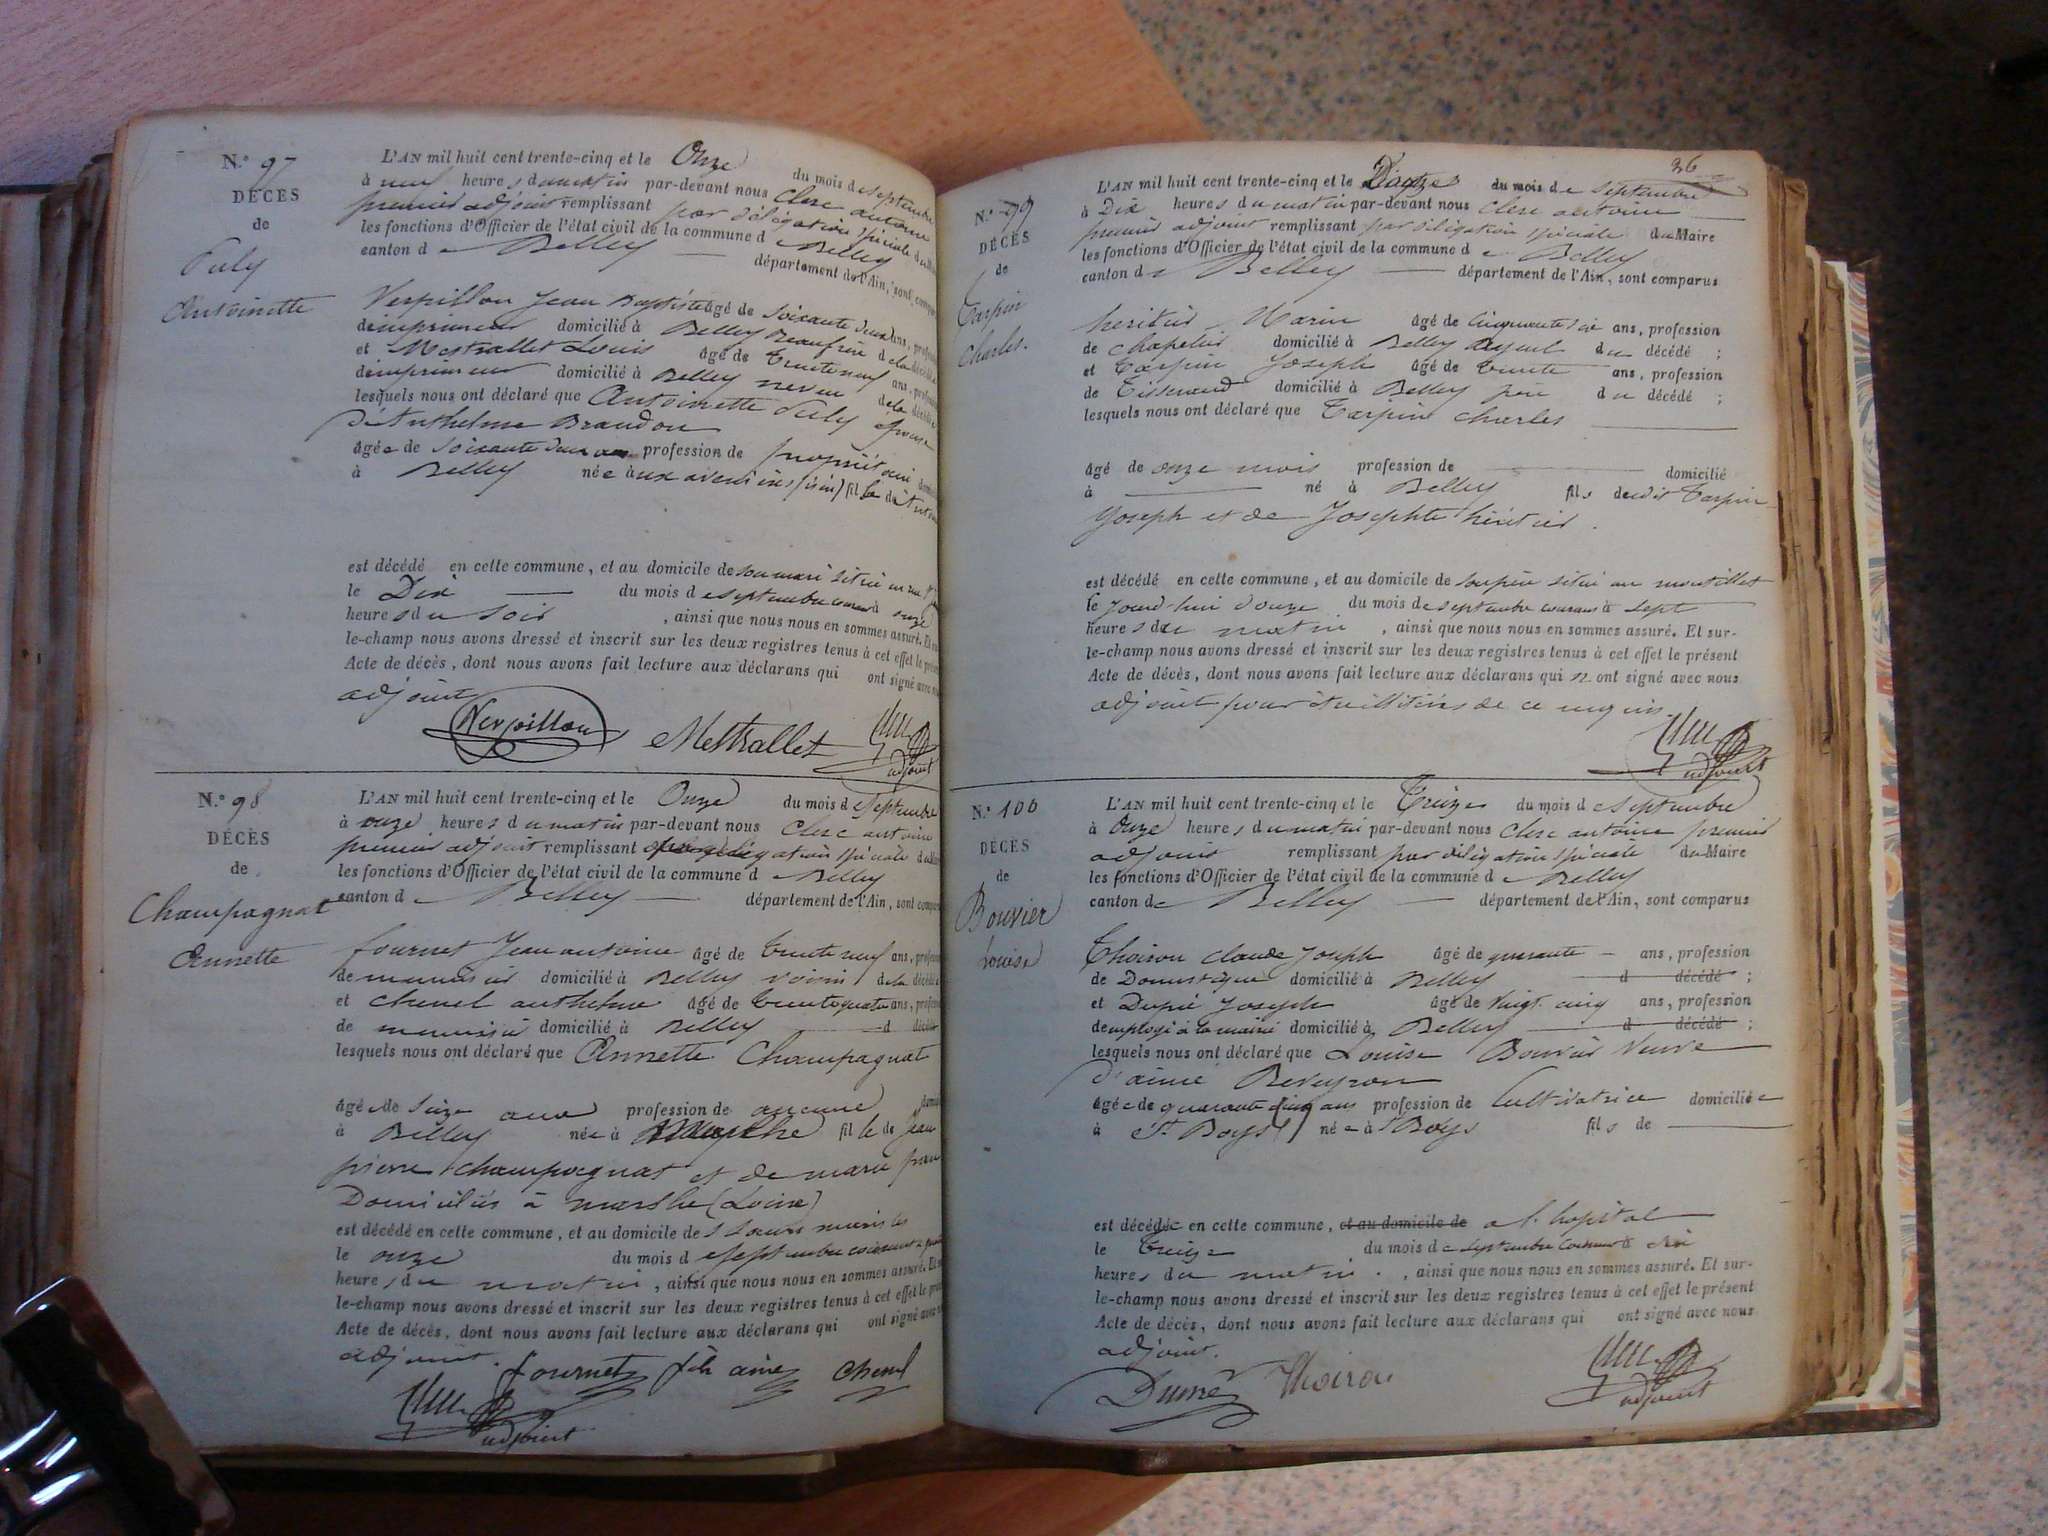 N.º 97
DÉCÈS
de
Puly
Antoinette
L'AN mil huit cent trente-cinq et le Onze du mois de septembre
à neuf heures du matin par-devant nous Clerc antoine
premier adjoint remplissant par délégation spéciale du
les fonctions d'Officier de l'état civil de la commune de Belley
canton de Belley département de l'Ain, sont
Verpillon Jean Baptiste âgé de soixante deux ans,
d'imprimeur domicilié à Belley Beaufrère de la décédée
et Mestrallet Louis âgé de trente neuf ans,
d'imprimeur domicilié à Belley neveu de la décédée
lesquels nous ont déclaré que Antoinette Puly épouse
d'Anthelme Brandon
âgée de soixante deux ans profession de propriétaire
à Belley née à aux avenières (isère) fille de
est décédé en cette commune, et au domicile de son mari situé
le Dix du mois de septembre courant à onze
heures du soir, ainsi que nous nous en sommes assuré. Et
le-champ nous avons dressé et inscrit sur les deux registres tenus à cet effet le
Acte de décès, dont nous avons fait lecture aux déclarans qui ont signé avec
adjoint
Verpillon Mestrallet
adjoint
N.º 98
DÉCÈS
de
Champagnat
Annette
L'AN mil huit cent trente-cinq et le Onze du mois de septembre
à onze heures du matin par-devant nous Clerc antoine
premier adjoint remplissant délégation spéciale
les fonctions d'Officier de l'état civil de la commune de Belley
canton de Belley département de l'Ain, sont
fournet Jean antoine âgé de trente neuf ans,
de menuisier domicilié à Belley voisin de la décédée
et Chenel anthelme âgé de trente quatre ans,
de menuisier domicilié à Belley d décédé
lesquels nous ont déclaré que Annette Champagnat
âgée de seize ans profession de aucune
à Belley née à fille de Jean
pierre champagnat et de marie
Domiciliés à marlhe (Loire)
est décédé en cette commune, et au domicile des soeurs
le onze du mois de septembre courant à
heures du matin, ainsi que nous nous en sommes assuré. Et
le-champ nous avons dressé et inscrit sur les deux registres tenus à cet effet le
Acte de décès, dont nous avons fait lecture aux déclarans qui ont signé
adjoint.
fournet fils ainé chenel
adjoint
36
N.º 99
DÉCÈS
de
Tarpin
Charles.
L'AN mil huit cent trente-cinq et le Douze du mois de septembre
à Dix heures du matin par-devant nous Clerc antoine
premier adjoint remplissant par délégation spéciale du Maire
les fonctions d'Officier de l'état civil de la commune de Belley
canton de Belley département de l'Ain, sont comparus
héritier Marin âgé de cinquante six ans, profession
de chapelier domicilié à Belley ayeul du décédé;
et Tarpin Joseph âgé de trente ans, profession
de Tisserand domicilié à Belley père du décédé;
lesquels nous ont déclaré que Tarpin Charles
âgé de onze mois profession de domicilié
à né à Belley fils de dit Tarpin
Joseph et de Josephte héritier.
est décédé en cette commune, et au domicile de son père situé au montillet
le jourd'hui douze du mois de septembre courant à sept
heures du matin, ainsi que nous nous en sommes assuré. Et sur-
le-champ nous avons dressé et inscrit sur les deux registres tenus à cet effet le présent
Acte de décès, dont nous avons fait lecture aux déclarans qui n'ont signé avec nous
adjoint pour être illitérés de ce requis
adjoint
N.º 100
DÉCÈS
de
Bouvier
Louise
L'AN mil huit cent trente-cinq et le Treize du mois de septembre
à Onze heures du matin par-devant nous Clerc antoine premier
adjoint remplissant par délégation spéciale du Maire
les fonctions d'Officier de l'état civil de la commune de Belley
canton de Belley département de l'Ain, sont comparus
Thoiron Claude Joseph âgé de quarante ans, profession
de Domestique domicilié à Belley d décédé;
et Joseph âgé de vingt cinq ans, profession
d'employé à la mairie domicilié à Belley d décédé;
lesquels nous ont déclaré que Louise Bouvier veuve
d'aimé Beveyron
âgée de quarante cinq ans profession de Cultivatrice domiciliée
à St Boys née à St Boys fils de
est décédée en cette commune, et au domicile de a l'hopital
le Treize du mois de septembre courant à dix
heures du matin., ainsi que nous nous en sommes assuré. Et sur-
le-champ nous avons dressé et inscrit sur les deux registres tenus à cet effet le présent
Acte de décès, dont nous avons fait lecture aux déclarans qui ont signé avec nous
adjoint.
adjoint